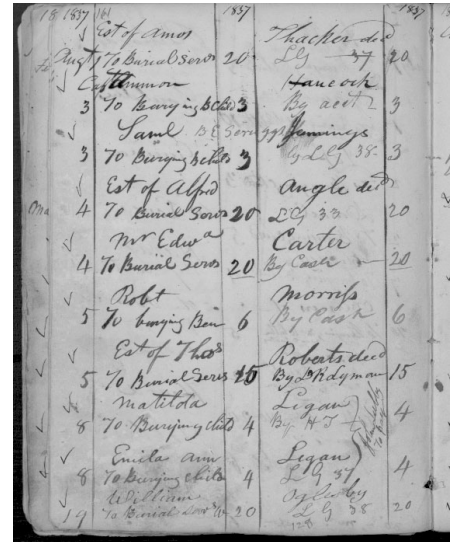 18 1837 161 1837 1837
Est of Amos Thacker decd
Augt 1 To Burial Servs 20 LG 37 20
Capt Ammon Hancock
3 To Burying B Child 3 By acct 3
Saml Jennings
3 To Burying B Child 3 By LG 38 3
Est of Alfred Angle decd
4 To Burial Servs 20 LG 33 20
Mr Edwd Carter
4 To Burial Servs 20 By Cash 20
Robt Morriss
5 To burying Ben 6 By Cash 6
Est of Thos Roberts decd
5 To Burial Servs 15 By 15
Matilda Logan
8 To Burying child 4 By H T 4
Emila Ann Logan
8 To Burying child 4 LG 37 4
William Oglesby
19 To Burial Servs W 20 LG 38 20